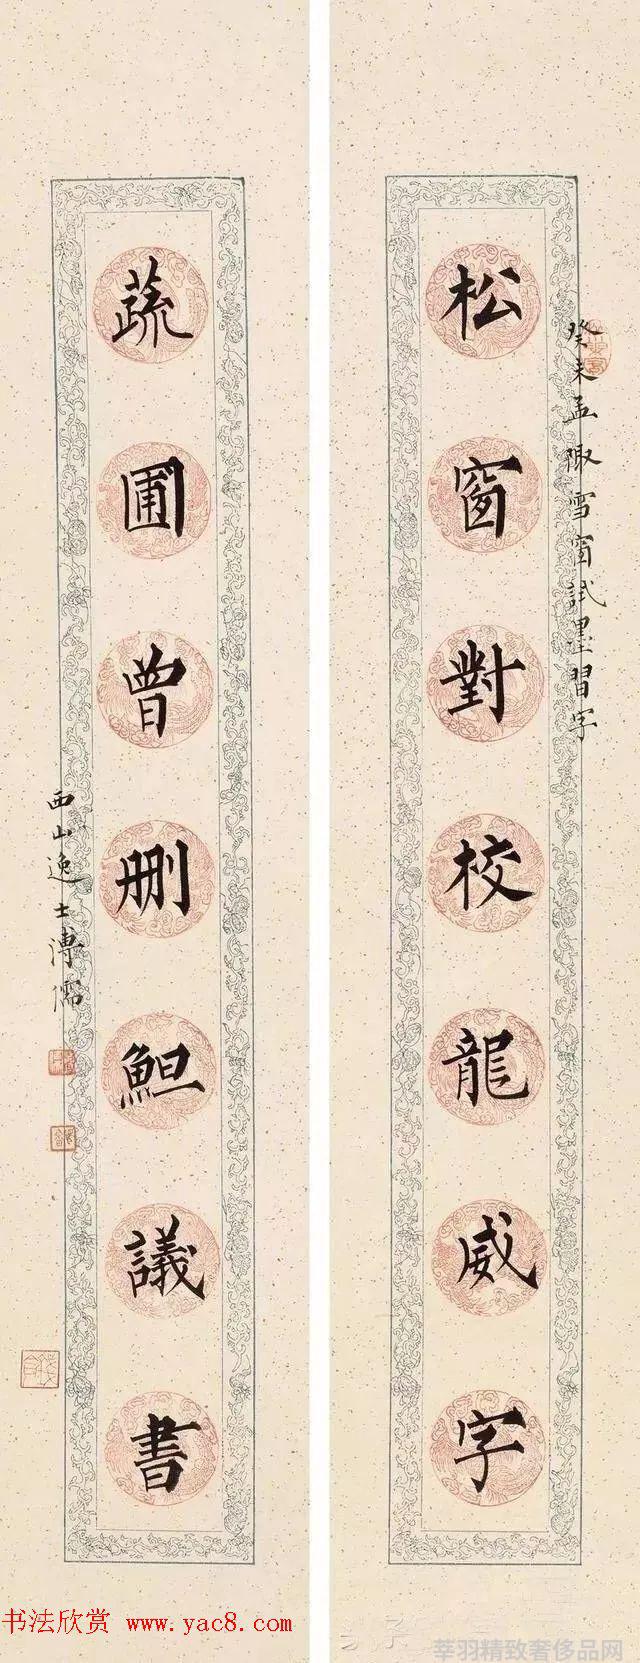 癸未孟陬雪窗試墨習字
松窗對校龍威字
蔬圃曾刪䱇議書
西山逸士溥儒
书法欣赏 www.yac8.com
莘羽精致奢侈品网